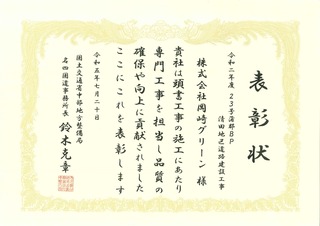 表彰状
令和二年度 23号蒲郡BP
清田地区道路建設工事
株式会社岡崎グリーン 様
貴社は頭書工事の施工にあたり
専門工事を担当し品質の
確保や向上に貢献されました
ここにこれを表彰します
令和五年七月二十日
国土交通省中部地方整備局
名四国道事務所長 鈴木克章